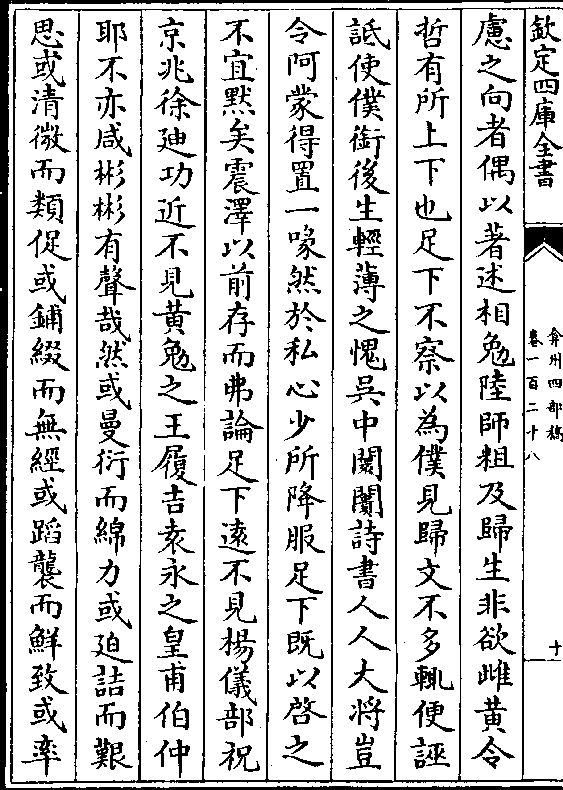 欽定四庫全書
弇州四部稿
卷一百二十八
十
慮之向者偶以著述相勉陸師粗及歸生非欲雌黄令
哲有所上下也足下不察以為僕見歸文不多輒便誣
詆使僕銜後生輕薄之愧吳中闤闠詩書人人大將豈
令阿蒙得置一喙然於私心少所降服足下既以啓之
不宜黙矣震澤以前存而弗論足下遠不見楊儀部祝
京兆徐廸功近不見黄勉之王履吉袁永之皇甫伯仲
耶不亦咸彬彬有聲哉然或曼衍而綿力或廹詰而艱
思或清微而類促或鋪綴而無經或蹈襲而鮮致或率